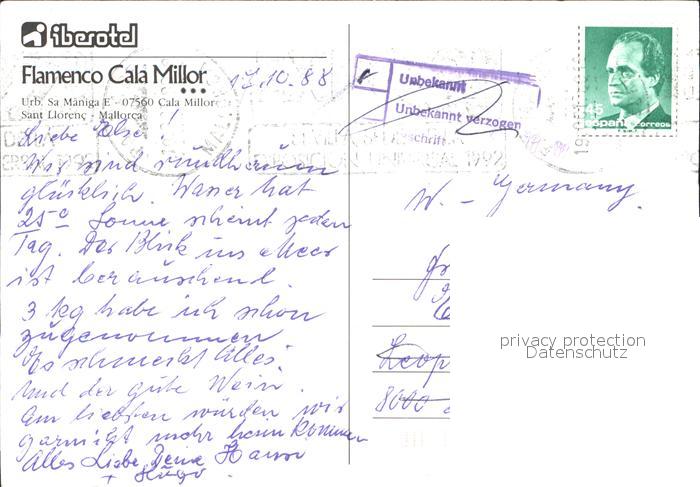 iberotel
Flamenco Cala Millor
Urb. Sa Màniga E - 07560 Cala Millor
Sant Llorenç - Mallorca
17.10.88
Liebe Else!
Wir sind rundherum
glücklich. Wasser hat
25° Sonne scheint jeden
Tag. Der Blick ins Meer
ist berauschend.
3 kg habe ich schon
zugenommen
Es schmeckt Alles.
Und der gute Wein.
Am liebsten würden wir
garnicht mehr heim kommen
Alles Liebe Deine Hanni
+ Hugo
Unbekannt
Unbekannt verzogen
45
España correos
1992
W. - Germany
8000
privacy protection
Datenschutz